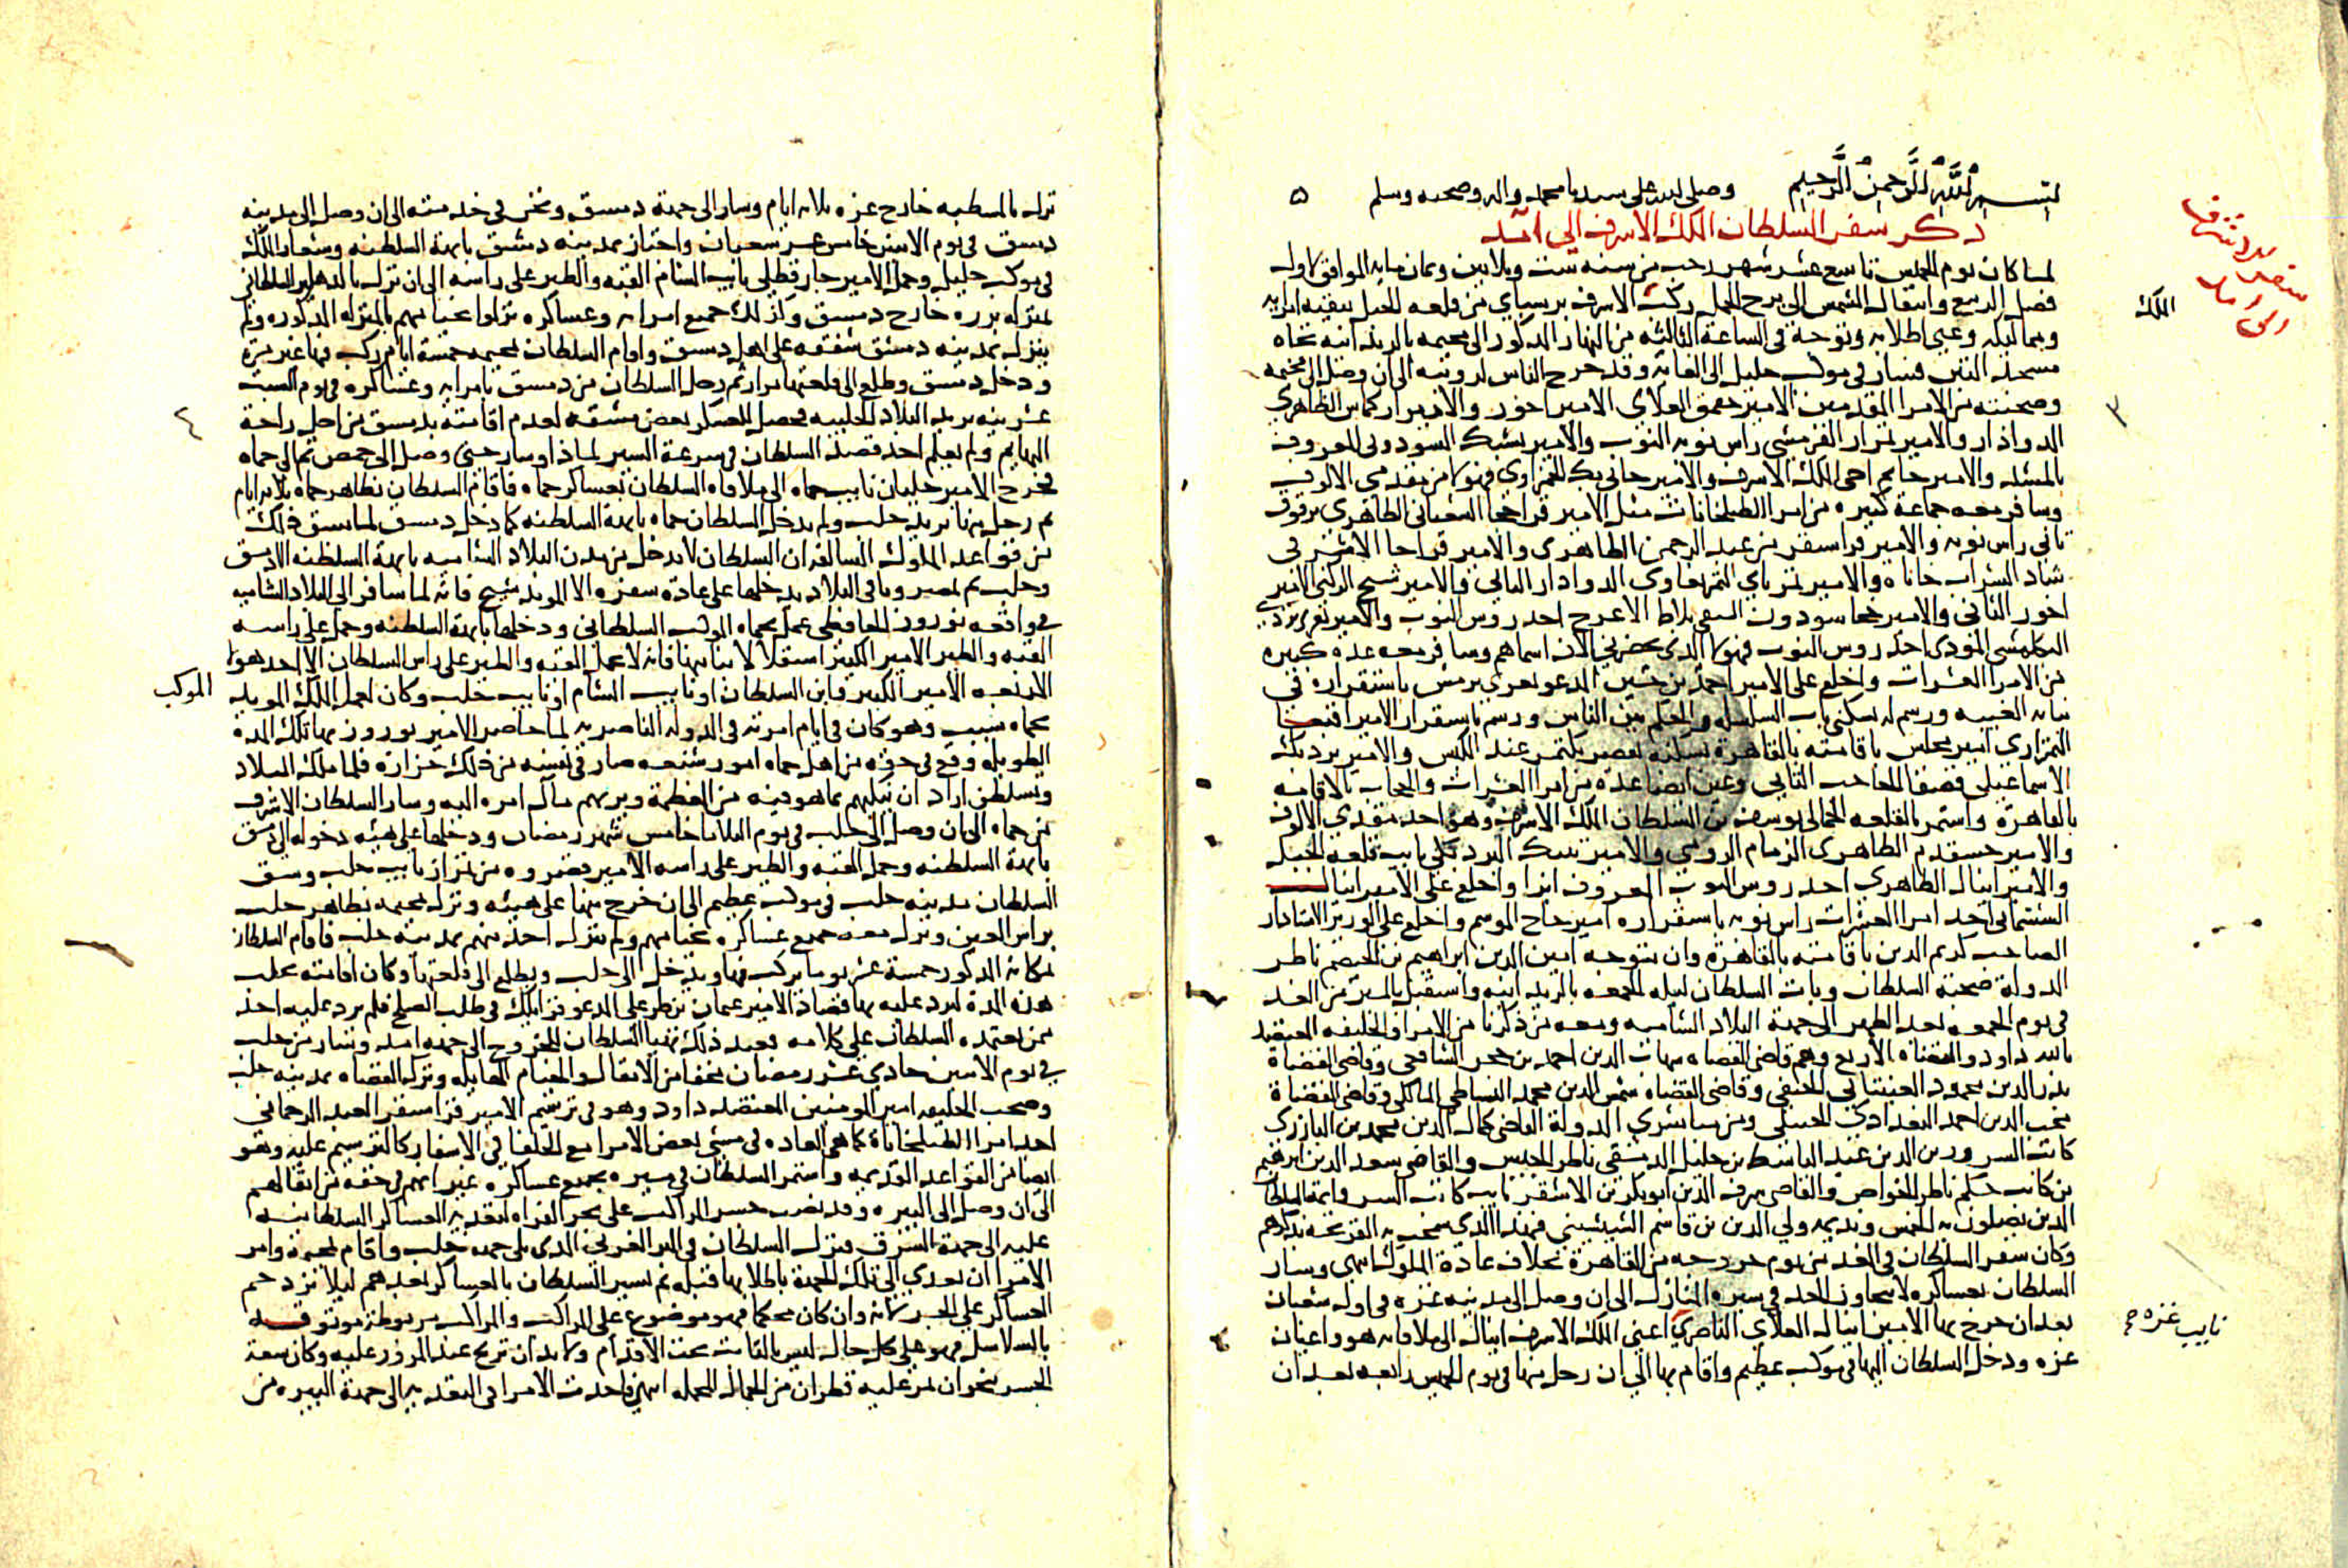 بسم الله الرحمن الرحيم وصلى الله على سيدنا محمد واله وصحبه وسلم
ذكر سفر السلطان الملك الاشرف الى آمد
لما كان يوم الخميس تاسع عشر شهر رجب من سنه ست وثلاثين وثمان مايه الموافق لاول
فصل الربيع وانتقال الشمس الى برج الحمل ركب الاشرف برسباي من قلعه الجبل ببقيه امرايه
ومماليكه وعبى اطلابه وتوجه في الساعة الثالثه من النهار المذكور الى مخيمه بالريدانيه تجاه
مسجد التبن فسار في موكب جليل الى الغايه وقد خرج الناس لرويته الى ان وصل الى مخيمه
وصحبته من الامرا المقدمين الامير جقمق العلاي الامير اخور والامير اركماس الظاهري
الدوادار والامير تمراز القرمشي راس نوبه النوب والامير يشبك السودوني المعروف
بالمشد والامير جانم اخى الملك الاشرف والامير جانى بك الحمزاوي فهولا من مقدمي الالوف
وسافر معه جماعة كبيره من امرا الطبلخانات مثل الامير قراخجا الشعبانى الظاهرى برقوق
ثانى راس نوبه والامير قراسنقر من عبد الرحمن الظاهرى والامير قراجا الاشرفى
شاد الشراب خاناه والامير تمرباي التمربغاوى الدوادار الثانى والامير شيخ الركنى الامير
اخور الثانى والامير خجا سودون السيفي بلاط الاعرج احد روس النوب والامير تغرى بردي
البكلمشى المؤذى احد روس النوب فهولا الذى يحضرني الان اسماهم وسافر معه عده كبيره
من الامرا العشرات واخلع على الامير
نيابه الغيبه ورسم له بسكنى باب السلسله والحكم بين الناس ورسم باستقرار الامير اقبغا
التمرازي امير مجلس باقامته بالقاهرة بسكنه بقصر بكتمر عند الكبش والامير بردبك
الاسماعيلى قصقا الحاجب الثاني وعين ايضا عدة من امرا العشرات والحجاب بالاقامه
بالقاهرة واستمر بالقلعه الجمالى يوسف بن السلطان الملك الاشرف وهو احد مقدمي الالوف
والامير خشقدم الظاهرى الزمام الرومي والامير تنبك البردبكي نايب قلعه الجبل
والامير اينال الظاهري احد روس النوب المعروف ابزا واخلع على الامير اينال
الششماني احد امرا العشرات راس نوبه باستقراره امير حاج الموسم واخلع على الوزير الاستادار
الصاحب كريم الدين باقامته بالقاهرة وان يتوجه امين الدين ابراهيم بن الهيصم ناظر
الدولة صحبة السلطان وبات السلطان ليله الجمعه بالريدانيه واستقل بالمسير من الغد
في يوم الجمعه بعد الظهر الى جهة البلاد الشاميه ومعه من ذكرنا من الامرا والخليفه المعتضد
بالله داود والقضاه الاربع وهم قاضى القضاه شهاب الدين احمد بن حجر الشافعي وقاضى القضاة
بدر الدين محمود العينتابي الحنفي وقاضى القضاه شمس الدين محمد البساطي المالكى وقاضى القضاة
محب الدين احمد البغدادى الحنبلى ومن مباشري الدولة القاضى كمال الدين محمد بن البارزي
كاتب السر وزين الدين عبد الباسط بن خليل الدمشقي ناظر الجيش والقاضى سعد الدين ابرهيم
بن كاتب جكم ناظر الخواص والقاضى شرف الدين ابوبكر بن الاشقر نايب كاتب السر وايمة السلطان
الدين يصلون به الخمس ونديمه ولي الدين بن قاسم الشيشيني فهذا الذى سمحت به القريحه بذكرهم
وكان سفر السلطان في الغد من يوم خروجه من القاهرة بخلاف عادة الملوك انتهى وسار
السلطان بعساكره لا يتجاوز الحد في سيره المنازل الى ان وصل الى مدينه غزه في اول شعبان
بعد ان خرج بها الامير اينال العلاي الناصري اعني الملك الاشرف اينال الى ملاقاته هو واعيان
غزه ودخل السلطان اليها في موكب عظيم واقام بها الى ان رحل منها في يوم الخميس رابعه بعد ان
سفر
الى امد
الملك
٣
نايب غزه
نزل بالمسطبه خارج غزه ثلاثه ايام وسار الى جهة دمشق ونحن في خدمته الى ان وصل الى مدينه
دمشق في يوم الاثنين خامس عشر شعبان واجتاز بمدينه دمشق بابهة السلطنه وشعار الملك
في موكب جليل وحمل الامير جارقطلي نايب الشام القبه والطير على راسه الى ان نزل بالدهليز السلطاني
بمنزله برزه خارج دمشق وكذلك جميع امرايه وعساكره نزلوا بخيامهم بالمنزله المذكوره ولم
ينزل بمدينه دمشق شفقه على اهل دمشق واقام السلطان بمخيمه خمسة ايام ركب فيها غير مرة
ودخل دمشق وطلع الى قلعتها مرارا ثم رحل السلطان من دمشق بامرايه وعساكره في يوم السبت
عشرينه يريد البلاد الحلبيه فحصل للعسكر بعض مشقه لعدم اقامته بدمشق من اجل راحة
البهايم ولم يعلم احد قصد السلطان في سرعة السير لماذا وسار حتى وصل الى حمص ثم الى حماه
فخرج الامير جلبان نايب حماه الى ملاقاه السلطان بعساكر حماه فاقام السلطان بظاهر حماه ثلاثه ايام
ثم رحل منها يريد حلب ولم يدخل السلطان حماه بابهة السلطنه كما دخل دمشق لما سبق ذلك
من قواعد الملوك السالفه ان السلطان لا يدخل من مدن البلاد الشاميه بابهة السلطنه الا دمشق
وحلب ثم مصر وباقى البلاد يدخلها على عادة سفره الا المويد شيخ فانه لما سافر الى البلاد الشاميه
في واقعه نوروز الحافظي عمل بحماه الموكب السلطاني ودخلها بابهة السلطنه وحمل على راسه
القبه والطير الامير الكبير استقلالا بنيابتها فانه لا يحمل القبه والطير على راس السلطان الا احد هولا
الاربعه الامير الكبير وابن السلطان او نايب الشام او نايب حلب وكان لعمل الملك المويد
بحماه سبب وهو كان في ايام امرته في الدوله الناصريه لما حاصر الامير نوروز بها تلك المدة
الطويله وقع في حقه من اهل حماه امور شنعه صار في نفسه من ذلك حزازه فلما ملك البلاد
وتسلطن اراد ان ينكيهم بما هو فيه من العظمة ويريهم مآل امره اليه وسار السلطان الاشرف
من حماه الى ان وصل الى حلب في يوم الثلاثا خامس شهر رمضان ودخلها على هيئه دخوله الى دمشق
بابهة السلطنه وحمل القبه والطير على راسه الامير قصروه من تمراز نايب حلب وشق
السلطان مدينه حلب في موكب عظيم الى ان خرج منها على هيئه ونزل بمخيمه بظاهر حلب
براس العين ونزل معه جميع عساكره بخيامهم ولم ينزل احد منهم بمدينه حلب فاقام السلطان
بمكانه المذكور خمسة عشر يوما يركب فيها ويدخل الى حلب ويطلع الى قلعتها وكان اقامته بحلب
هذه المدة ليرد عليه بها قصاد الامير عثمان بن طرعلى المدعو قرايلك في طلب الصلح فلم يرد عليه احد
ممن يعتمده السلطان على كلامه فعند ذلك تهيا السلطان للخروج الى جهه امد وسار من حلب
في يوم الاثنين حادي عشر رمضان مخفا من الاثقال والخيام الهايله وترك القضاه بمدينه حلب
وصحب الخليفه امير المومنين المعتضد داود وهو في ترسيم الامير قراسنقر العبد الرحماني
احد امرا الطبلخاناة كما هى العاده في مشي بعض الامرا مع الخلفا في الاسفار كالترسيم عليه وهو
ايضا من القواعد القديمه واستمر السلطان في مسيره بجميع عساكره غير انهم في خفه من اثقالهم
الى ان وصل الى البيره وقد نصب جسر المراكب على بحر الفراه لتعديه العساكر السلطانيه
عليه الى جهة الشرق فنزل السلطان في البر الغربي الذى يلى جهه حلب واقام بمخيمه وامر
الامرا ان تعدي الى تلك الجهة باطلابها قبله ثم يسير السلطان بالعساكر بعدهم ليلا تزدحم
العساكر على الجسر لانه وان كان محكما فهو موضوع على المراكب والمراكب مربوطة موثوقه
بالسلاسل فهو على كل حال ليس بالثابت تحت الاقدام ولا بد ان ترتج عند المرور عليه وكان سعة
الجسر نحو ان تمر عليه قطران من الجمال المحمله انتهى فاخذت الامرا فى التعديه الى جهة البيره من
الموكب
٤